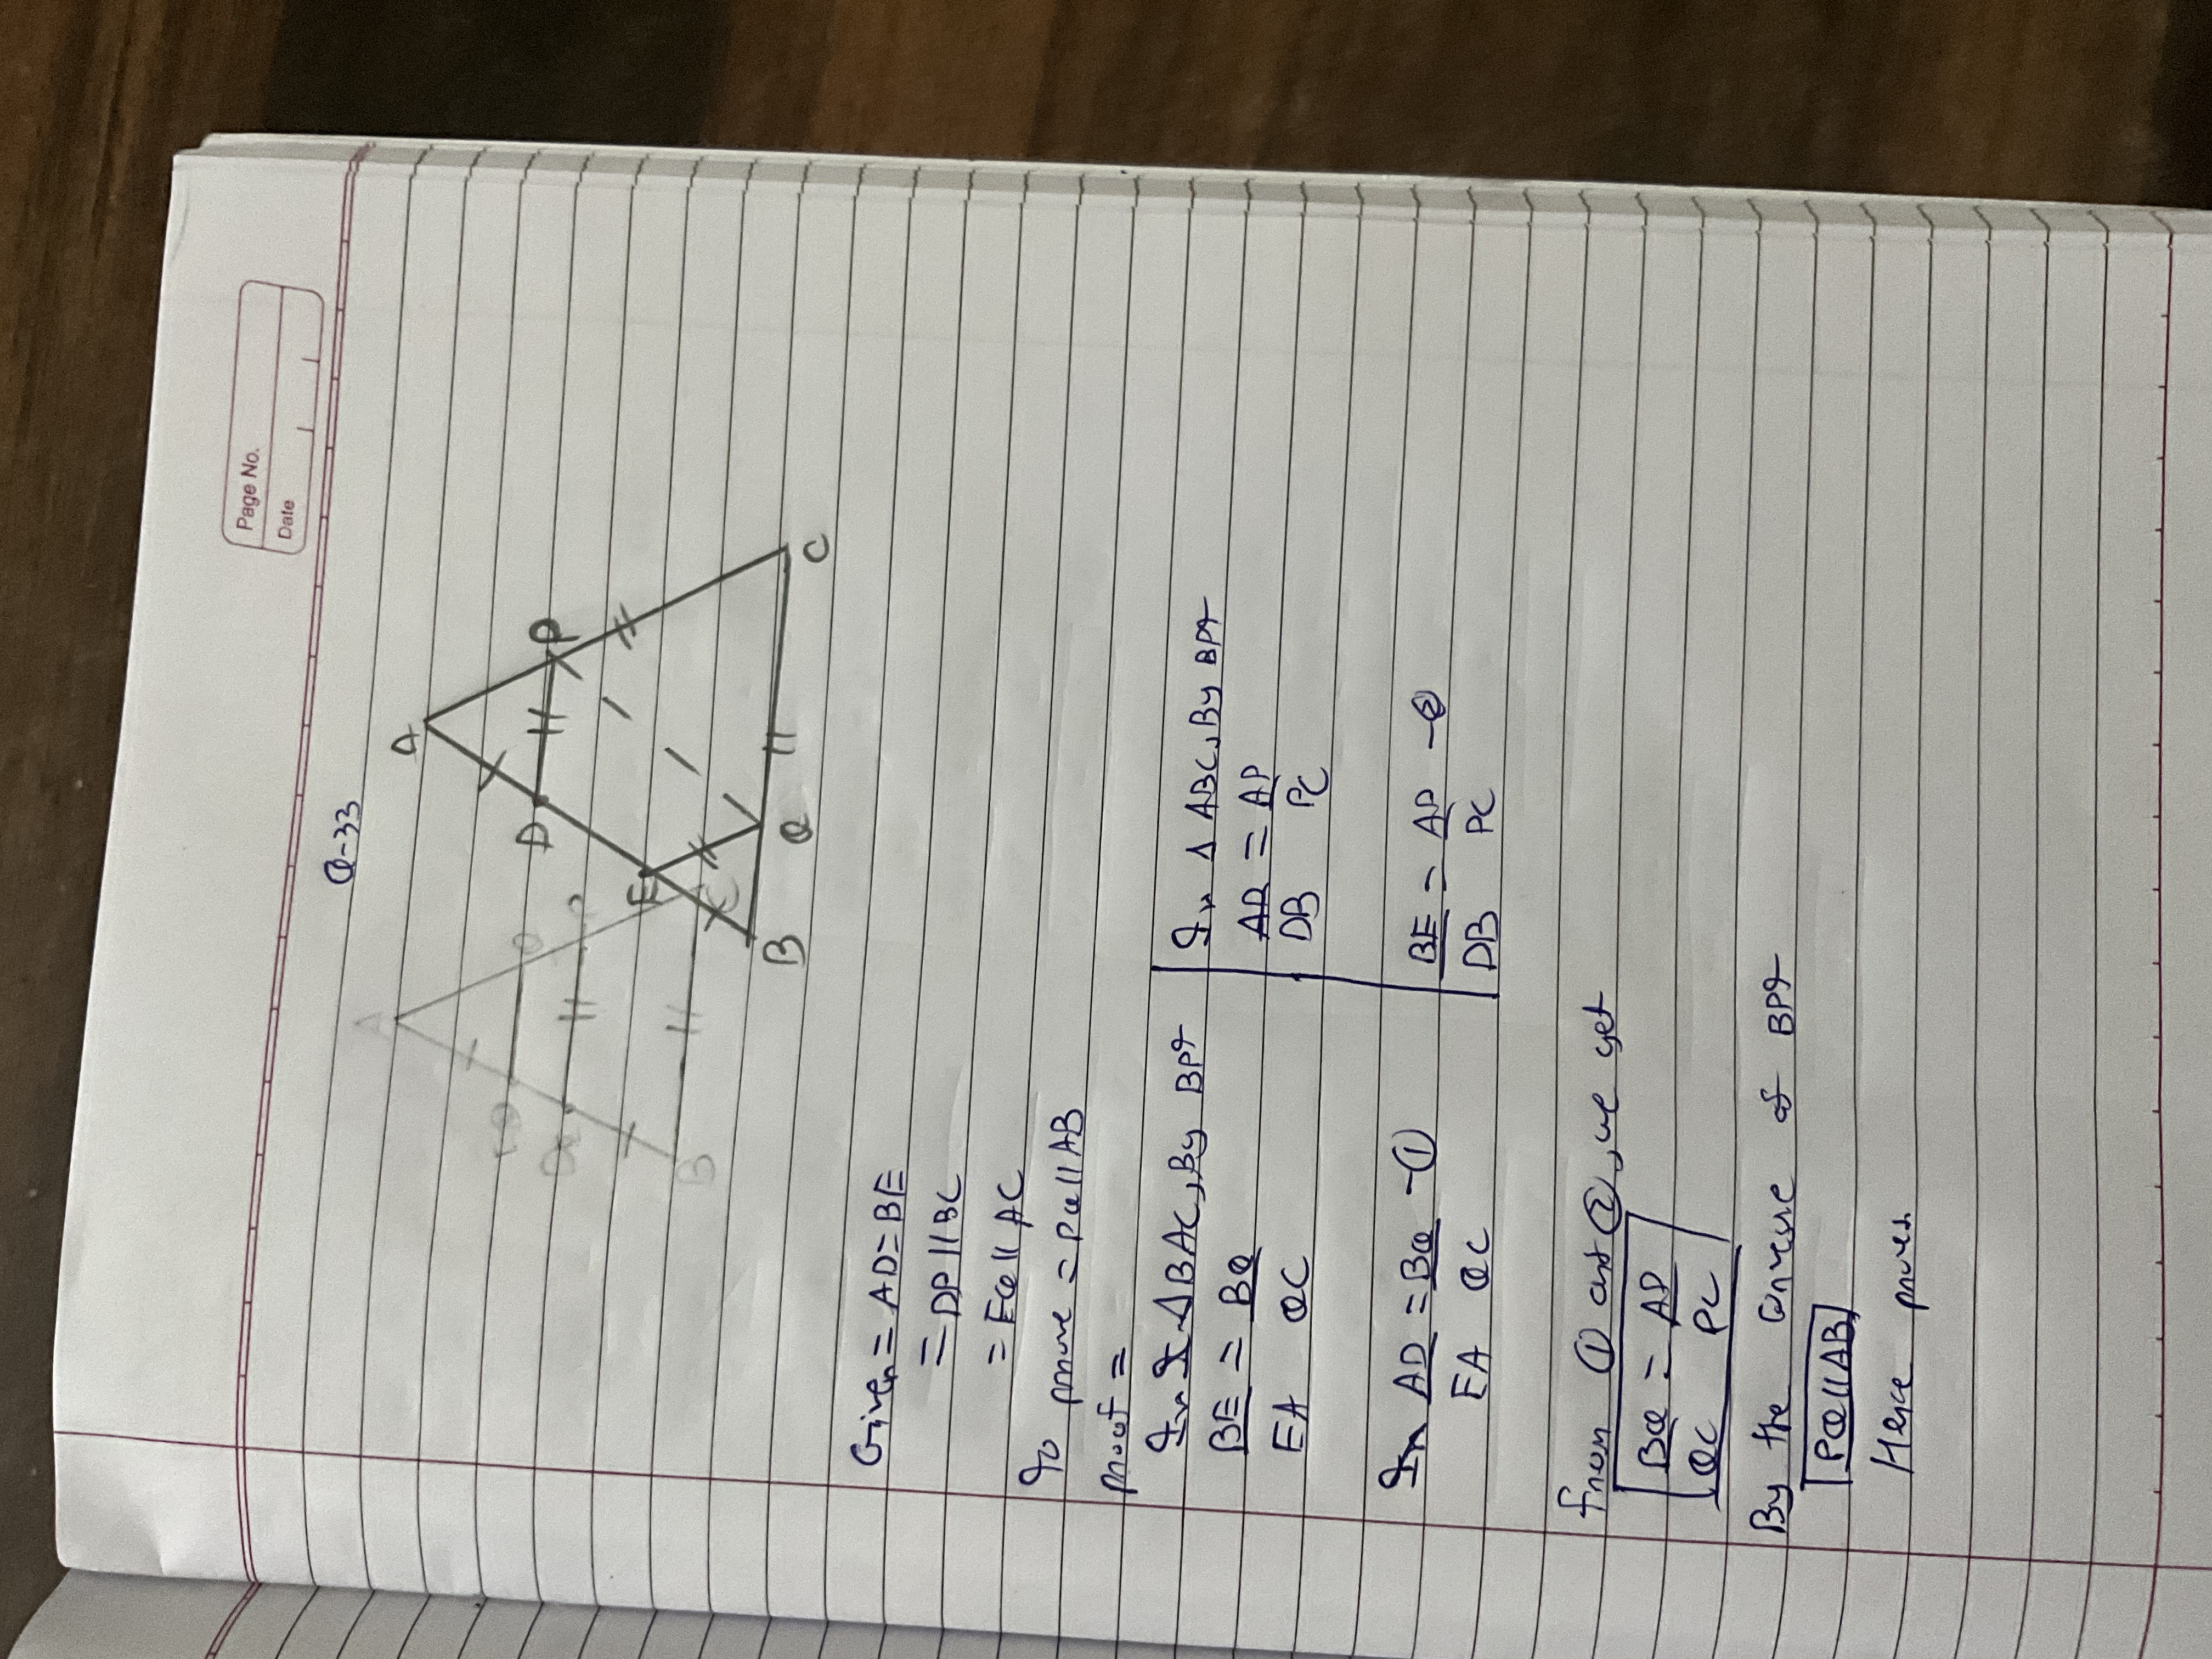 Page No.
Date
Q-33
A
D
P
E
B
Q
C
A
B
Given = AD=BE
= DP || BC
= EQ || AC
To prove = PQ || AB
proof =
In △BAC, By BPT
BE = BQ
EA QC
In AD = BQ -①
EA QC
In △ ABC, By BPT
AD = AP
DB PC
BE = AP -②
DB PC
from ① and ②, we get
BQ = AP
QC PC
By the converse of BPT
PQ || AB
Hence proves